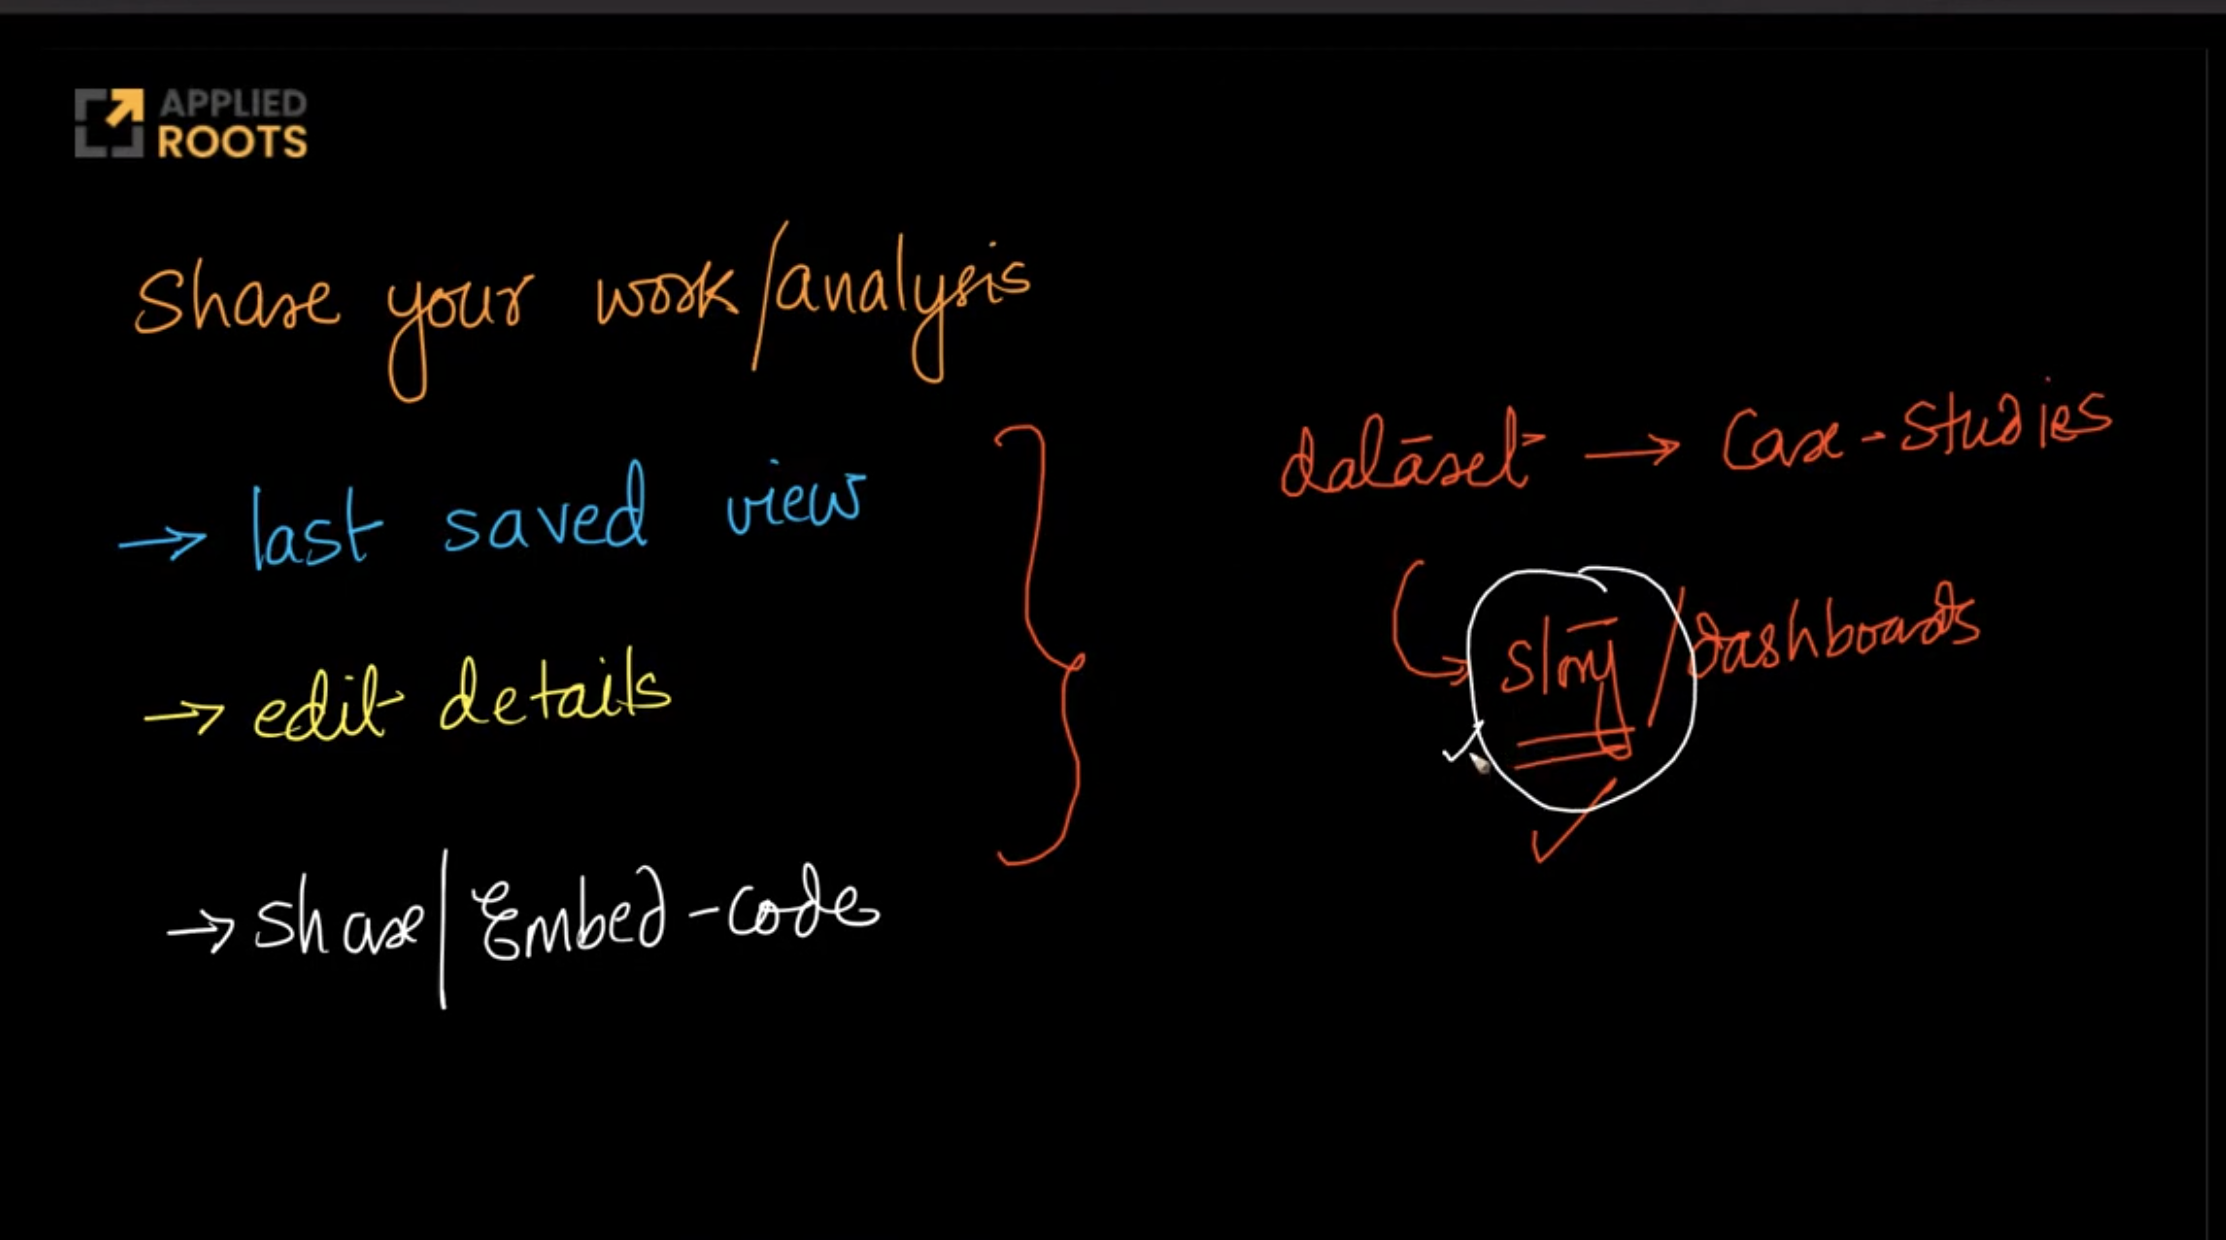 APPLIED
ROOTS
Share your work/analysis
→ last saved view
→ edit details
→ share | Embed-code
dataset → Case-Studies
story / dashboards